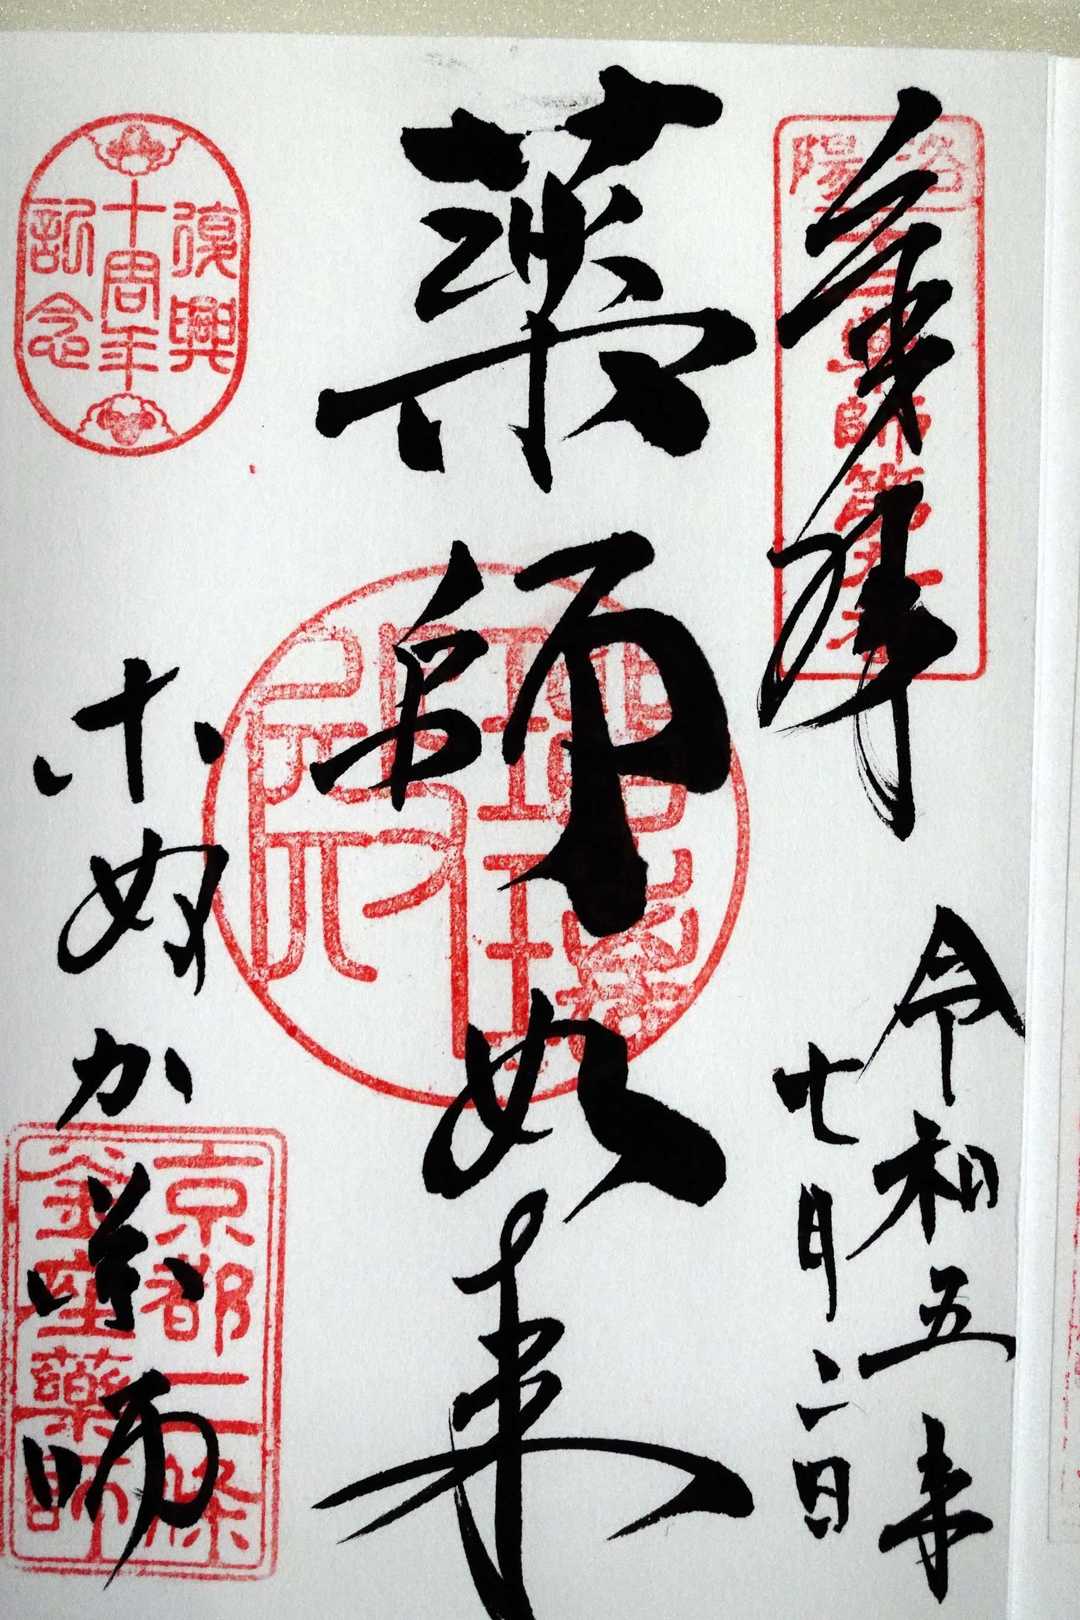 奉拝
洛陽
十二薬師第番
令和五年
七月二日
薬師如来
瑠璃
殿
復興
十周年
記念
ぬか薬師
京都二條
釜座薬師